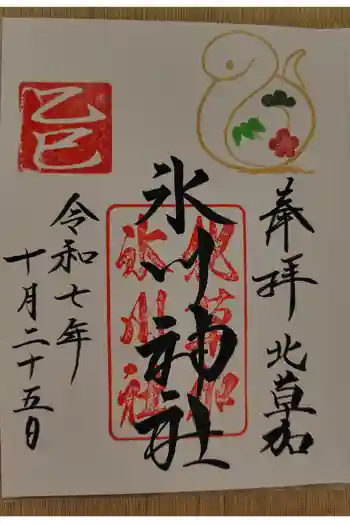 奉拝 北草加
北草加
氷川社
氷川神社
乙巳
令和七年
十月二十五日